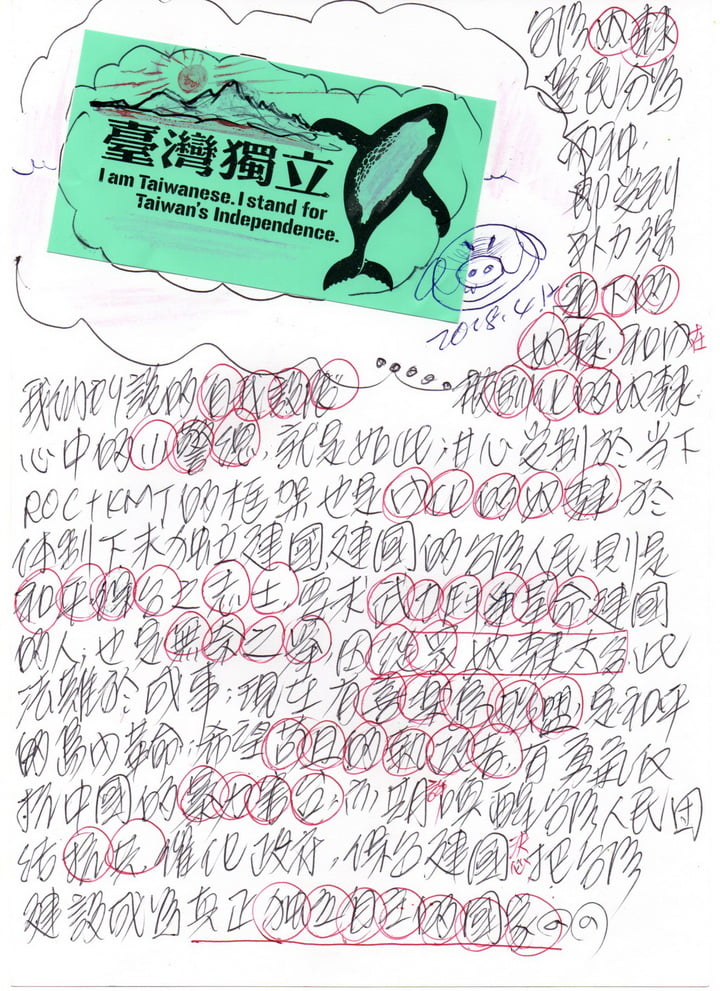 臺灣獨立
I am Taiwanese. I stand for
Taiwan's Independence.
2018.4.12
台灣奴隸
選民分為
兩種,
即受到
外力強
迫下的
奴隸.和內在
被馴化的奴隸.
我們所說的自我設限
心中的小警總,就是如此;甘心受制於當下
ROC+KMT的框架也是內化的奴隸於
體制下未獨立建國,建國的台灣人民則是
和平台之志士,要求武力鬥爭革命建國
的人,也是無奈之舉,因從眾奴隸太多,此
法難於成事;現在有喜樂島聯盟,是和平
的島內革命;希望苟且的執政者,有勇氣反
抗中國的暴力,而期許喚醒台灣人民團
結抗共,催化政府,保台建國決心把台灣
建設成為真正獨立自主的國家